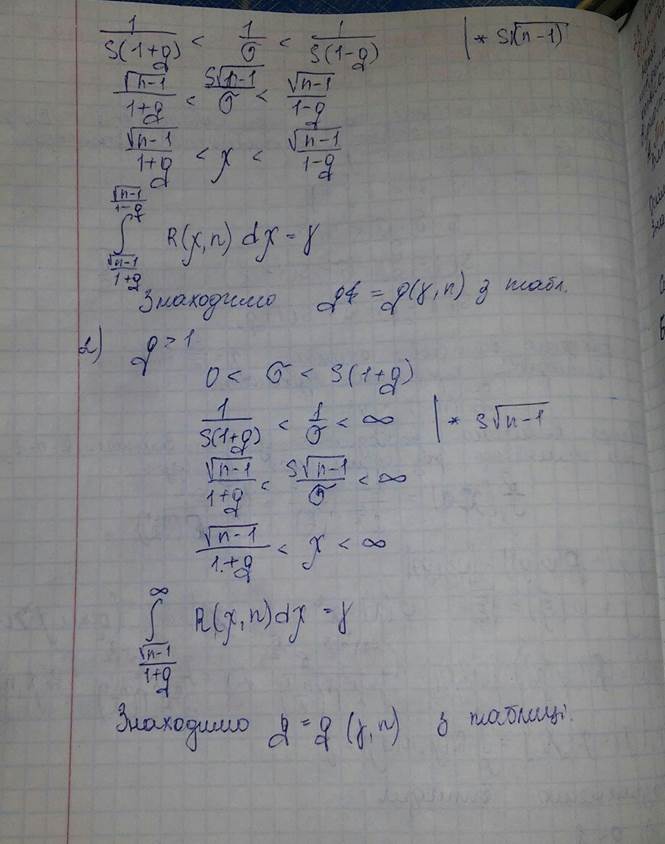 1/(S(1+q)) < 1/σ < 1/(S(1-q)) | * S√(n-1)
√(n-1)/(1+q) < S√(n-1)/σ < √(n-1)/(1-q)
√(n-1)/(1+q) < χ < √(n-1)/(1-q)
∫_{√(n-1)/(1+q)}^{√(n-1)/(1-q)} R(χ,n) dχ = γ
Знаходимо q = q(γ,n) з табл.
2) q > 1
0 < σ < S(1+q)
1/(S(1+q)) < 1/σ < ∞ | * S√(n-1)
√(n-1)/(1+q) < S√(n-1)/σ < ∞
√(n-1)/(1+q) < χ < ∞
∫_{√(n-1)/(1+q)}^{∞} R(χ,n)dχ = γ
Знаходимо q = q (γ,n) з таблиці.